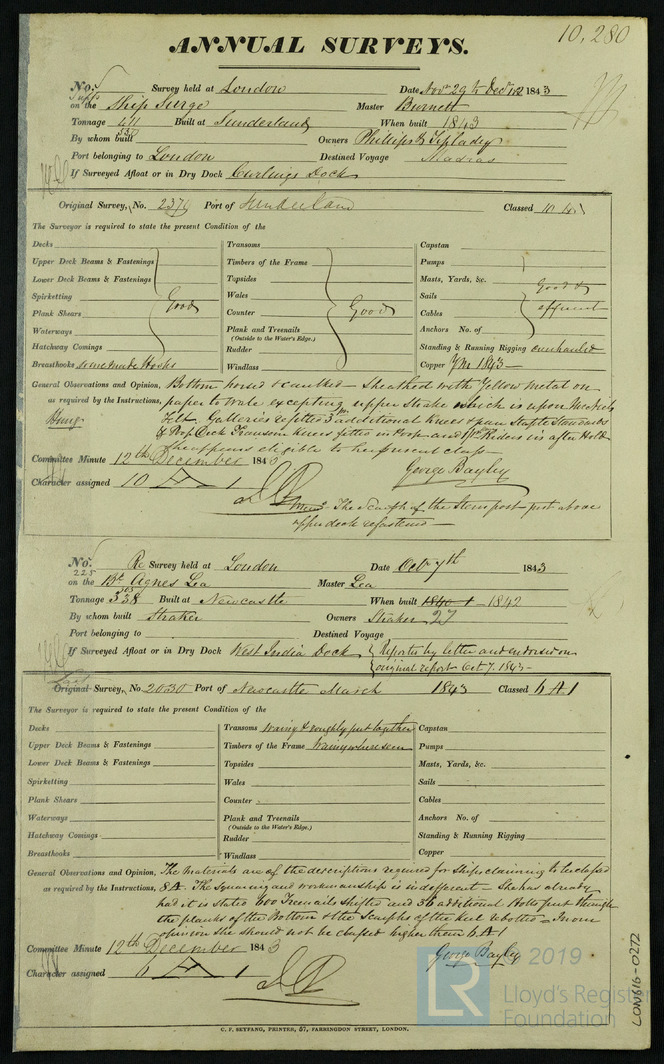 10,280
ANNUAL SURVEYS.
No. Survey held at London Date Novr 29th Decr 12 1843
on the Ship Surge Master Burnett
Tonnage 411 Built at Sunderland When built 1843
530
By whom built Owners Phillips & Tiplady
Port belonging to London Destined Voyage Madras
If Surveyed Afloat or in Dry Dock Curlings Dock
Original Survey, No. 2374 Port of Sunderland Classed 10 A 1
The Surveyor is required to state the present Condition of the
Decks Transoms Capstan
Upper Deck Beams & Fastenings Timbers of the Frame Pumps
Lower Deck Beams & Fastenings Topsides Masts, Yards, &c.
Spirketting Wales Sails Good &
Plank Shears Good Counter Good Cables efficient
Waterways Plank and Treenails Anchors No. of
(Outside to the Water's Edge.)
Hatchway Comings Rudder Standing & Running Rigging overhauled
Breasthooks some made Hooks Windlass Copper YM 1843
General Observations and Opinion, Bottom horsed & caulked – Sheathed with Yellow metal on
as required by the Instructions, paper to wale excepting upper Strake which is upon
Felt. Galleries refitted 3 additional Knees & pair Staple Standards
Poop Deck Transom Knees fitted in Poop and Riders in after Hold
She appears eligible to her present class
Committee Minute 12th December 1843 George Bayley
Character assigned 10 A 1
The Scarph of the Stern post post above
upper deck refastened
No. Re Survey held at London Date Octr 7th 1843
225
on the Bk Agnes Lea Master Lea
Tonnage 338 Built at Newcastle When built 1840-1 1842
By whom built Straker Owners Straker 27
Port belonging to Destined Voyage
If Surveyed Afloat or in Dry Dock West India Dock Reported by letter and endorsed on
original report Oct 7. 1843
Original Survey, No. 2030 Port of Newcastle March 1843 Classed 6 A 1
The Surveyor is required to state the present Condition of the
Decks Transoms wainy & roughly put together Capstan
Upper Deck Beams & Fastenings Timbers of the Frame wainy where seen Pumps
Lower Deck Beams & Fastenings Topsides Masts, Yards, &c.
Spirketting Wales Sails
Plank Shears Counter Cables
Waterways Plank and Treenails Anchors No. of
(Outside to the Water's Edge.)
Hatchway Comings Rudder Standing & Running Rigging
Breasthooks Windlass Copper
General Observations and Opinion, The Materials are of the descriptions required for Ships claiming to be classed
as required by the Instructions, 8 A. The squaring and workmanship is indifferent – She has already
had it is stated 600 Treenails shifted and 36 additional Bolts put through
the planks of the Bottom & the Scarphs of the Keel rebolted – In our
opinion She should not be classed higher than 6 A 1
Committee Minute 12th December 1843 George Bayley
Character assigned 6 A 1
C. F. SEYFANG, PRINTER, 57, FARRINGDON STREET, LONDON.
LR 2019
Lloyd's Register
Foundation
LON616-0272